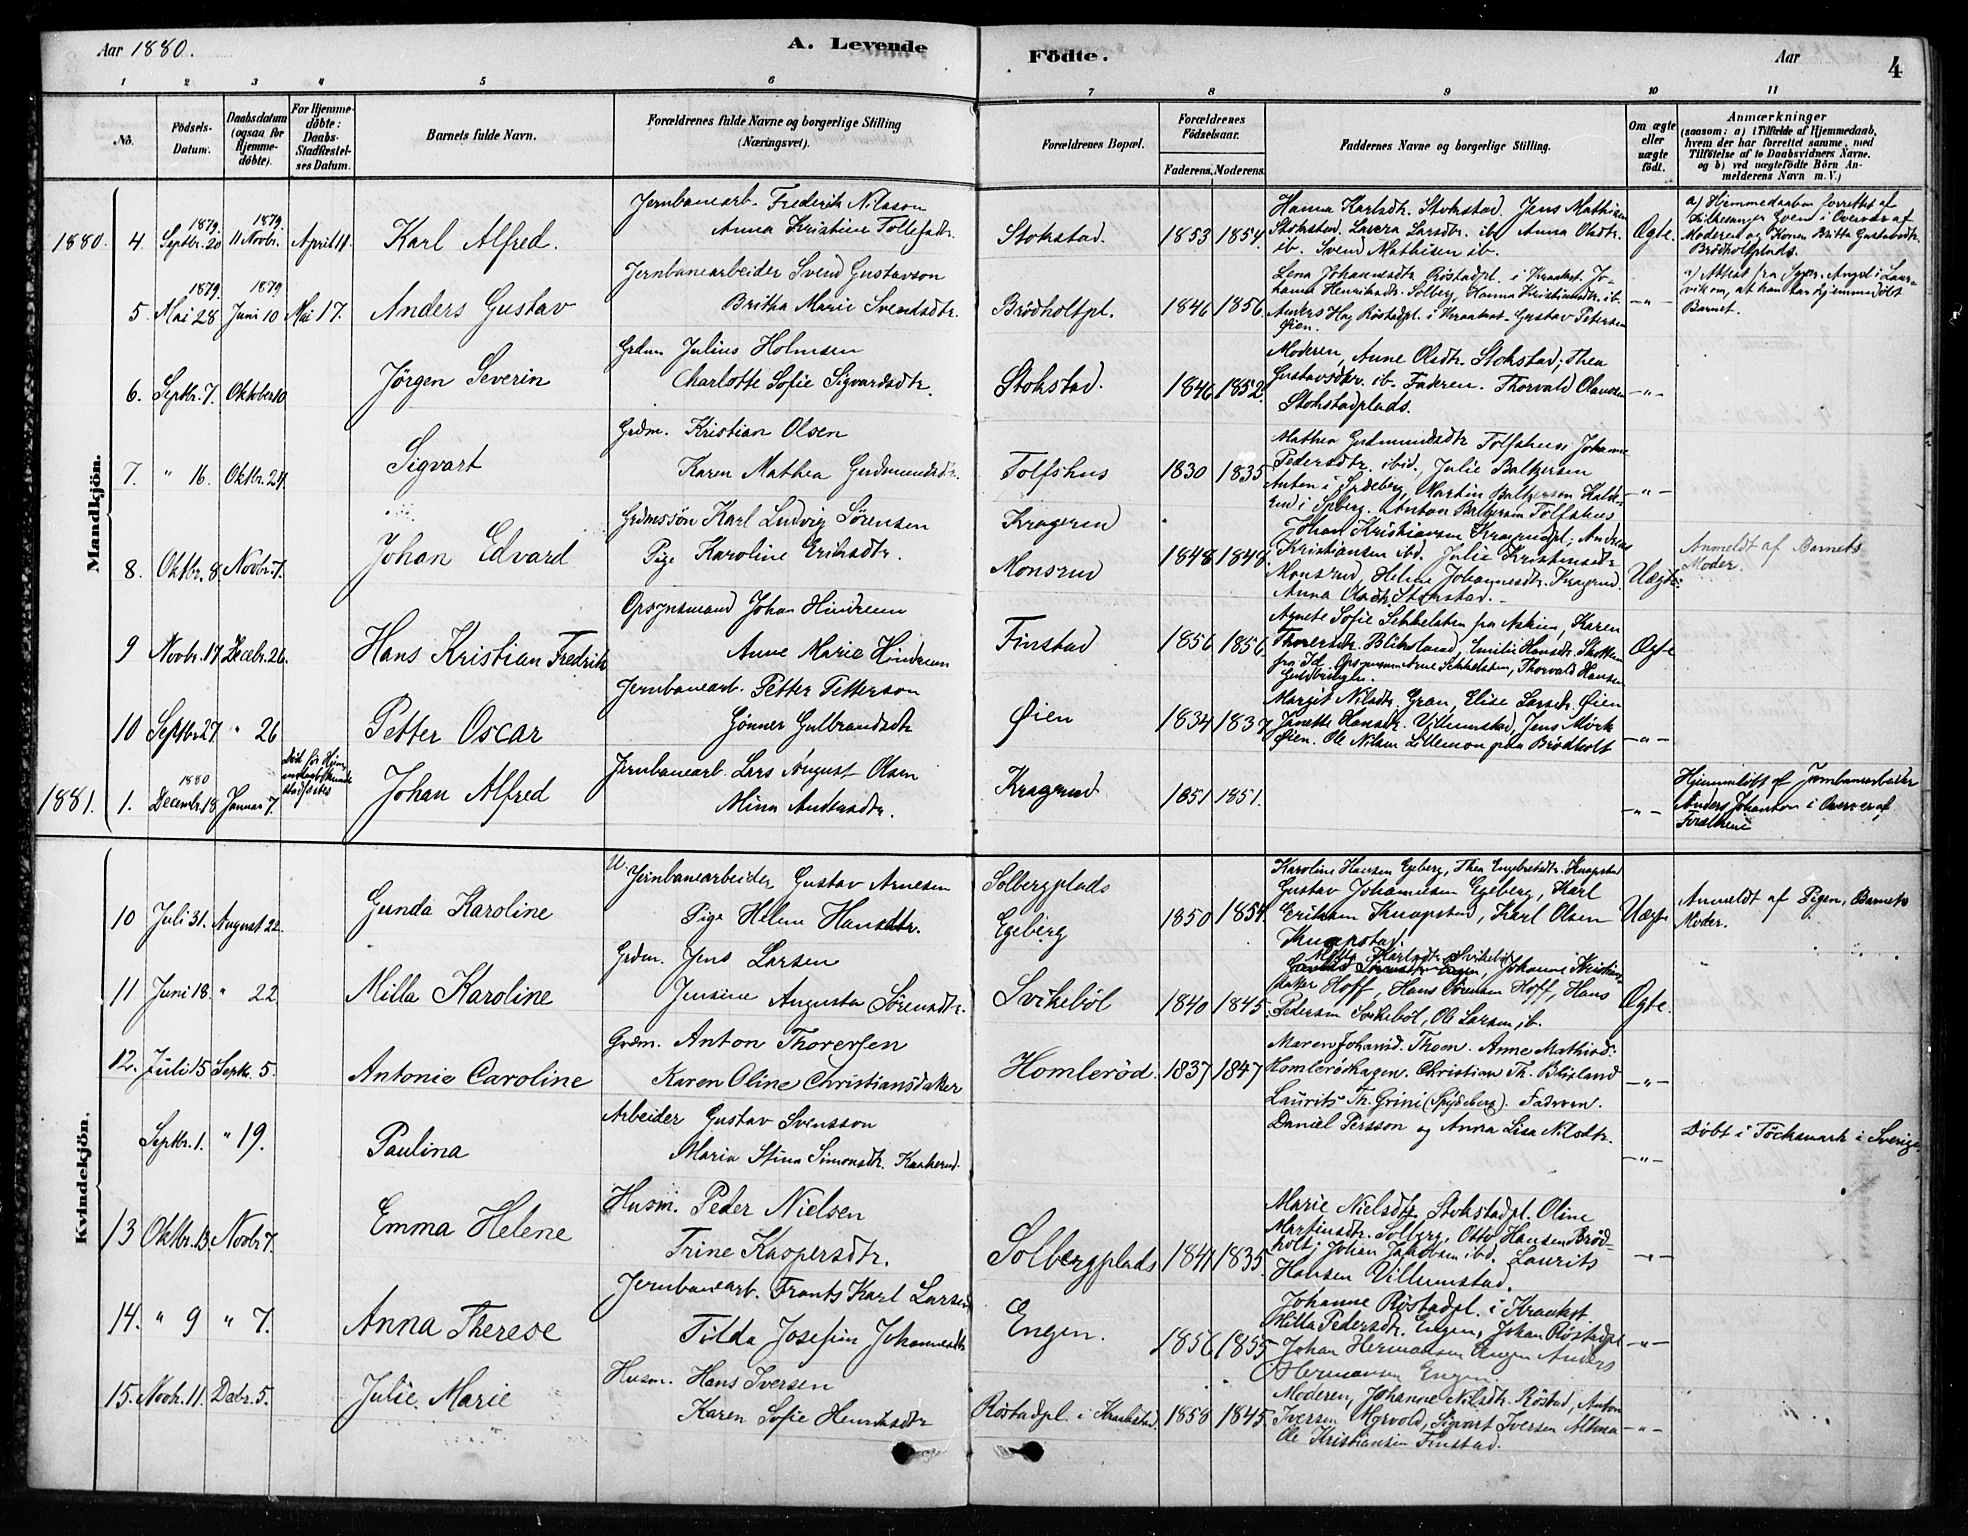 Aar 1880. A. Levende Födte. Aar 4
1 2 3 4 5 6 7 8 9 10 11
No. Födsels-Datum. Daabsdatum (ogsaa for Hjemmedöbte). For Hjemmedöbte: Daabs-Stadfæstelses Datum. Barnets fulde Navn. Forældrenes fulde Navne og borgerlige Stilling (Næringsvei). Forældrenes Bopæl. Forældrenes Födselsaar. Faderens. Moderens. Faddernes Navne og borgerlige Stilling. Om ægte eller uægte födt. Anmærkninger (saasom: a) i Tilfælde af Hjemmedaab, hvem der har forrettet samme, med Tilföielse af to Daabsvidners Navne. og b) ved uægtefödte Börn Anmelderens Navn m. V.)
Mandkjön.
1880. 4. 1879. Septbr. 20 1879. 11 Novbr. April 11. Karl Alfred. Jernbanearb. Frederik Nilsson
Anna Kristine Tollefsdtr. Stokstad. 1853 1854 Hanna Karlsdtr. Stokstad. Jens Mathisen
Stokstad. Laura Larsdtr. ib. Anna Olsdtr.
ib. Svend Mathisen ib. Ægte. a) Hjemmedaaben forrettet af
Kirkesanger Evend i Overvær af
Moderen og Konen Britta Gustavsdtr.
Brödholtplads.
5. 1879. Mai 28 1879 Juni 10 Mai 17. Anders Gustav Jernbanearbeider Svend Gustavson
Britha Marie Svendsdtr. Brödholtpl. 1846 1856. Lena Johannesdtr Röstadpl. i Kraakst. Jo-
hanna Henriksdtr. Solberg, Hanna Kristiansdtr. ib.
Anders Röstadpl. i Kraakst. Gustav Petersen
Øien. — " — a) Attest fra i Laur-
vik om, at han har hjemmedöbt
Barnet.
6. Septbr. 7. Oktober 10 Jörgen Severin Grdm. Julius Holmsen
Charlotte Sofie Sigvardsdtr. Stokstad. 1846 1852. Moderen, Anne Olsdtr. Stokstad, Thea
Gustavsdtr. ib. Faderen. Thorvald Olaussen
Stokstadplads. — " —
7. " 16. Oktbr. 24. Sigvart Grdm. Kristian Olsen
Karen Mathea Gudmundsdtr. Tolfshus 1830 1835 Mathea Gudmundsdtr Tolfshus, Johanne
Pedersdtr. ibid. Julie Baltzersen
i Spydeberg, Martin Baltzersen
i Spberg. Anton Baltzersen Tolfshus — " —
8. Oktbr. 8. Novbr. 7. Johan Edvard Grdmssön Karl Ludvig Sörensen
Pige Karoline Eriksdtr. Kragerud
Monsrud 1848 1848. Johan Kristiansen Kragerudpl. Andreas
Kristiansen ibd. Julie Kristiansdtr
Monsrud, Helene Johannesdtr. Kragrud.
Anna Olsdtr Stokstad. Uægte. Anmeldt af Barnets
Moder.
9 Novbr. 17 Decbr. 26. Hans Kristian Fredrik Opsynsmand Johan Hindrum
Anne Marie Hindrum Finstad 1856 1856. Agnete Sofie Sekkelsten fra Askim, Karen
Thoresdtr. Bliksland, Emilie Hansdtr.
Arne Sekkelsten, Thorvald Hansen Ægte
10 Septbr. 27 " 26 Petter Oscar Jernbanearb. Petter Petterson
Gönner Gulbrandsdtr Øien 1834 1837 Margit Nilsdtr. Gran, Elise Larsdtr. Øien
Janette Hansdtr. Villumstad, Jens Mörk
Øien. Ole Nilsen Lillemon paa Brödholt — " —
1881. 1. 1880 Decembr. 18. Januar 7. Död för Hjemmedaaben kunde stadfæstes Johan Alfred Jernbanearb. Lars August Olsen
Mina Andersdtr. Kragerud 1851 1851. — " — Hjemmedöbt af Jernbanearbeider
Anders Johanson i Overvær af
Forældrene
Kvindekjön.
10 Juli 31. August 22 Gunda Karoline U. Jernbanearbeider Gustav Arnesen
Pige Helene Hansdtr. Solbergplads
Egeberg 1850 1854. Karoline Hansen Egeberg, Thea Engebretsdtr. Knapstad
Gustav Johannesen Egeberg, Karl
Eriksen Knapstad, Karl Olsen
Knapstad. Uægte Anmeldt af Pigen, Barnets
Moder.
11 Juni 18. " 22 Milla Karoline Grdm. Jens Larsen
Jensine Augusta Sörensdtr. Svikeböl 1840 1845. Karlsdtr. Svikeböl
Johanne Kristians-
daker Hoff, Hans Sörensen Hoff, Hans
Pedersen Svikeböl, Ole Larsen ib. Ægte.
12. Juli 15 Septr. 5. Antonie Caroline Grdm. Anton Thoresen
Karen Oline Christiansdaker Homleröd. 1837 1847 Maren Johansd. Thoen. Anne Mathisd.
Homleröd­hagen. Christian Th. Blixland
Laurits Th. Grini (Spydeberg). Faderen. — " —
Septbr. 1. " 19. Paulina Arbeider Gustav Svensson
Maria Stina Simonsdtr. Kaaterud. Daniel Persson og Anna Lisa Nilsdtr. — " — Döbt i Töcksmark i Sverige.
13 Oktbr. 13. Novbr. 7. Emma Helene Husm. Peder Nielsen
Trine Kaspersdtr. Solbergplads 1841 1835. Marie Nielsdtr. Stokstadpl. Oline
Martinsdtr. Solberg, Otto Hansen Bröd-
holt; Johan Jakobsen ibd. Laurits
Hansen Villumstad. — " —
14. " 9 " 7. Anna Therese Jernbanearb. Frants Karl Larsen
Tilda Josefin Johannesdtr Engen. 1856 1855 Johanne Röstadpl. i Kraakst.
Milla Pedersdtr. Engen, Johan Röstadpl.
Johan Hermansen Engen Anders
Hermansen Engen. — " —
15. Novbr. 11. Decbr. 5. Julie Marie Husm. Hans Iversen
Karen Sofie Henriksdtr Röstadpl. i Kraakstad. 1858 1845 Moderen, Johanne Nilsdtr. Röstad, Anton
Iversen Myrvold, Sigvart Iversen
Ole Kristiansen Finstad. — " —